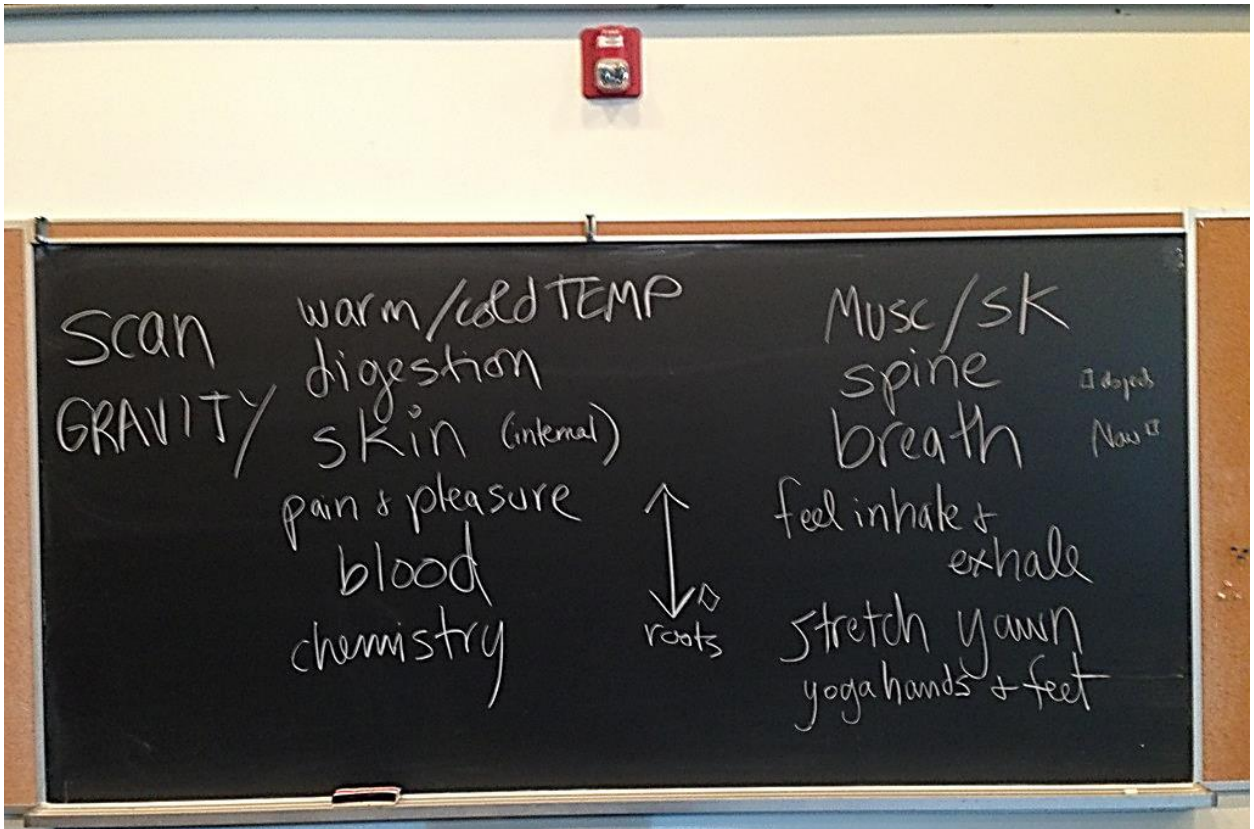 scan
GRAVITY
warm/cold TEMP
digestion
skin (internal)
pain & pleasure
blood
chemistry
roots
Musc/sk
spine
breath
feel inhale &
exhale
stretch yawn
yoga hands & feet